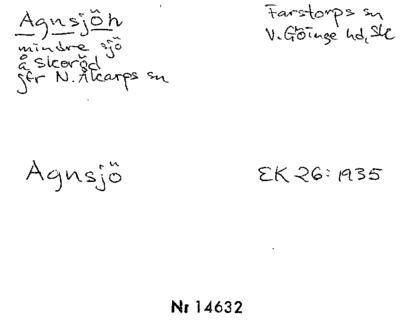 Agnsjön
mindre sjö
å Skeröd
jfr N. Åkarps sn
Farstorps sn
V. Göinge hd, Sk
Agnsjö
EK 26: 1935
Nr 14632